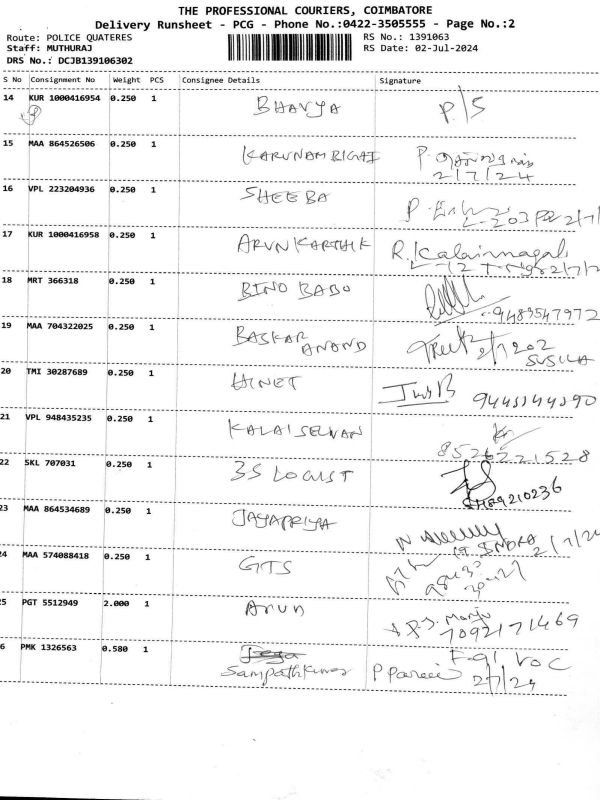 THE PROFESSIONAL COURIERS, COIMBATORE
Delivery Runsheet - PCG - Phone No.:0422-3505555 - Page No.:2
Route: POLICE QUATERES
RS No.: 1391063
Staff: MUTHURAJ
RS Date: 02-Jul-2024
DRS No.: DCJB139106302
S No Consignment No Weight PCS Consignee Details Signature
14 KUR 1000416954 0.250 1 BHAVYA P/S
15 MAA 864526506 0.250 1 KARUNAMBIGAI P.
2/7/24
16 VPL 223204936 0.250 1 SHEEBA
17 KUR 1000416958 0.250 1 ARUN KARTHIK R.
18 MRT 366318 0.250 1 BINO BABO
9489547972
19 MAA 704322025 0.250 1 BASKAR
ANAND
SUSILA
20 TMI 30287689 0.250 1 HINET
21 VPL 948435235 0.250 1 KALAISELVAN
8526221528
22 SKL 707031 0.250 1 3S LOGIST
23 MAA 864534689 0.250 1 JAYAPRIYA
INDRA
24 MAA 574088418 0.250 1 GTS
5 PGT 5512949 2.000 1 ARUN
S. Manju
7092171469
6 PMK 1326563 0.580 1
Sampathkumar
2/7/24